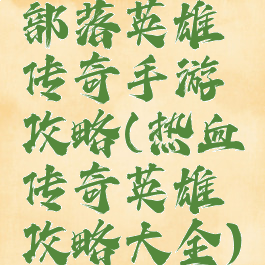 部落英雄
传奇手游
攻略(热血
传奇英雄
攻略大全)